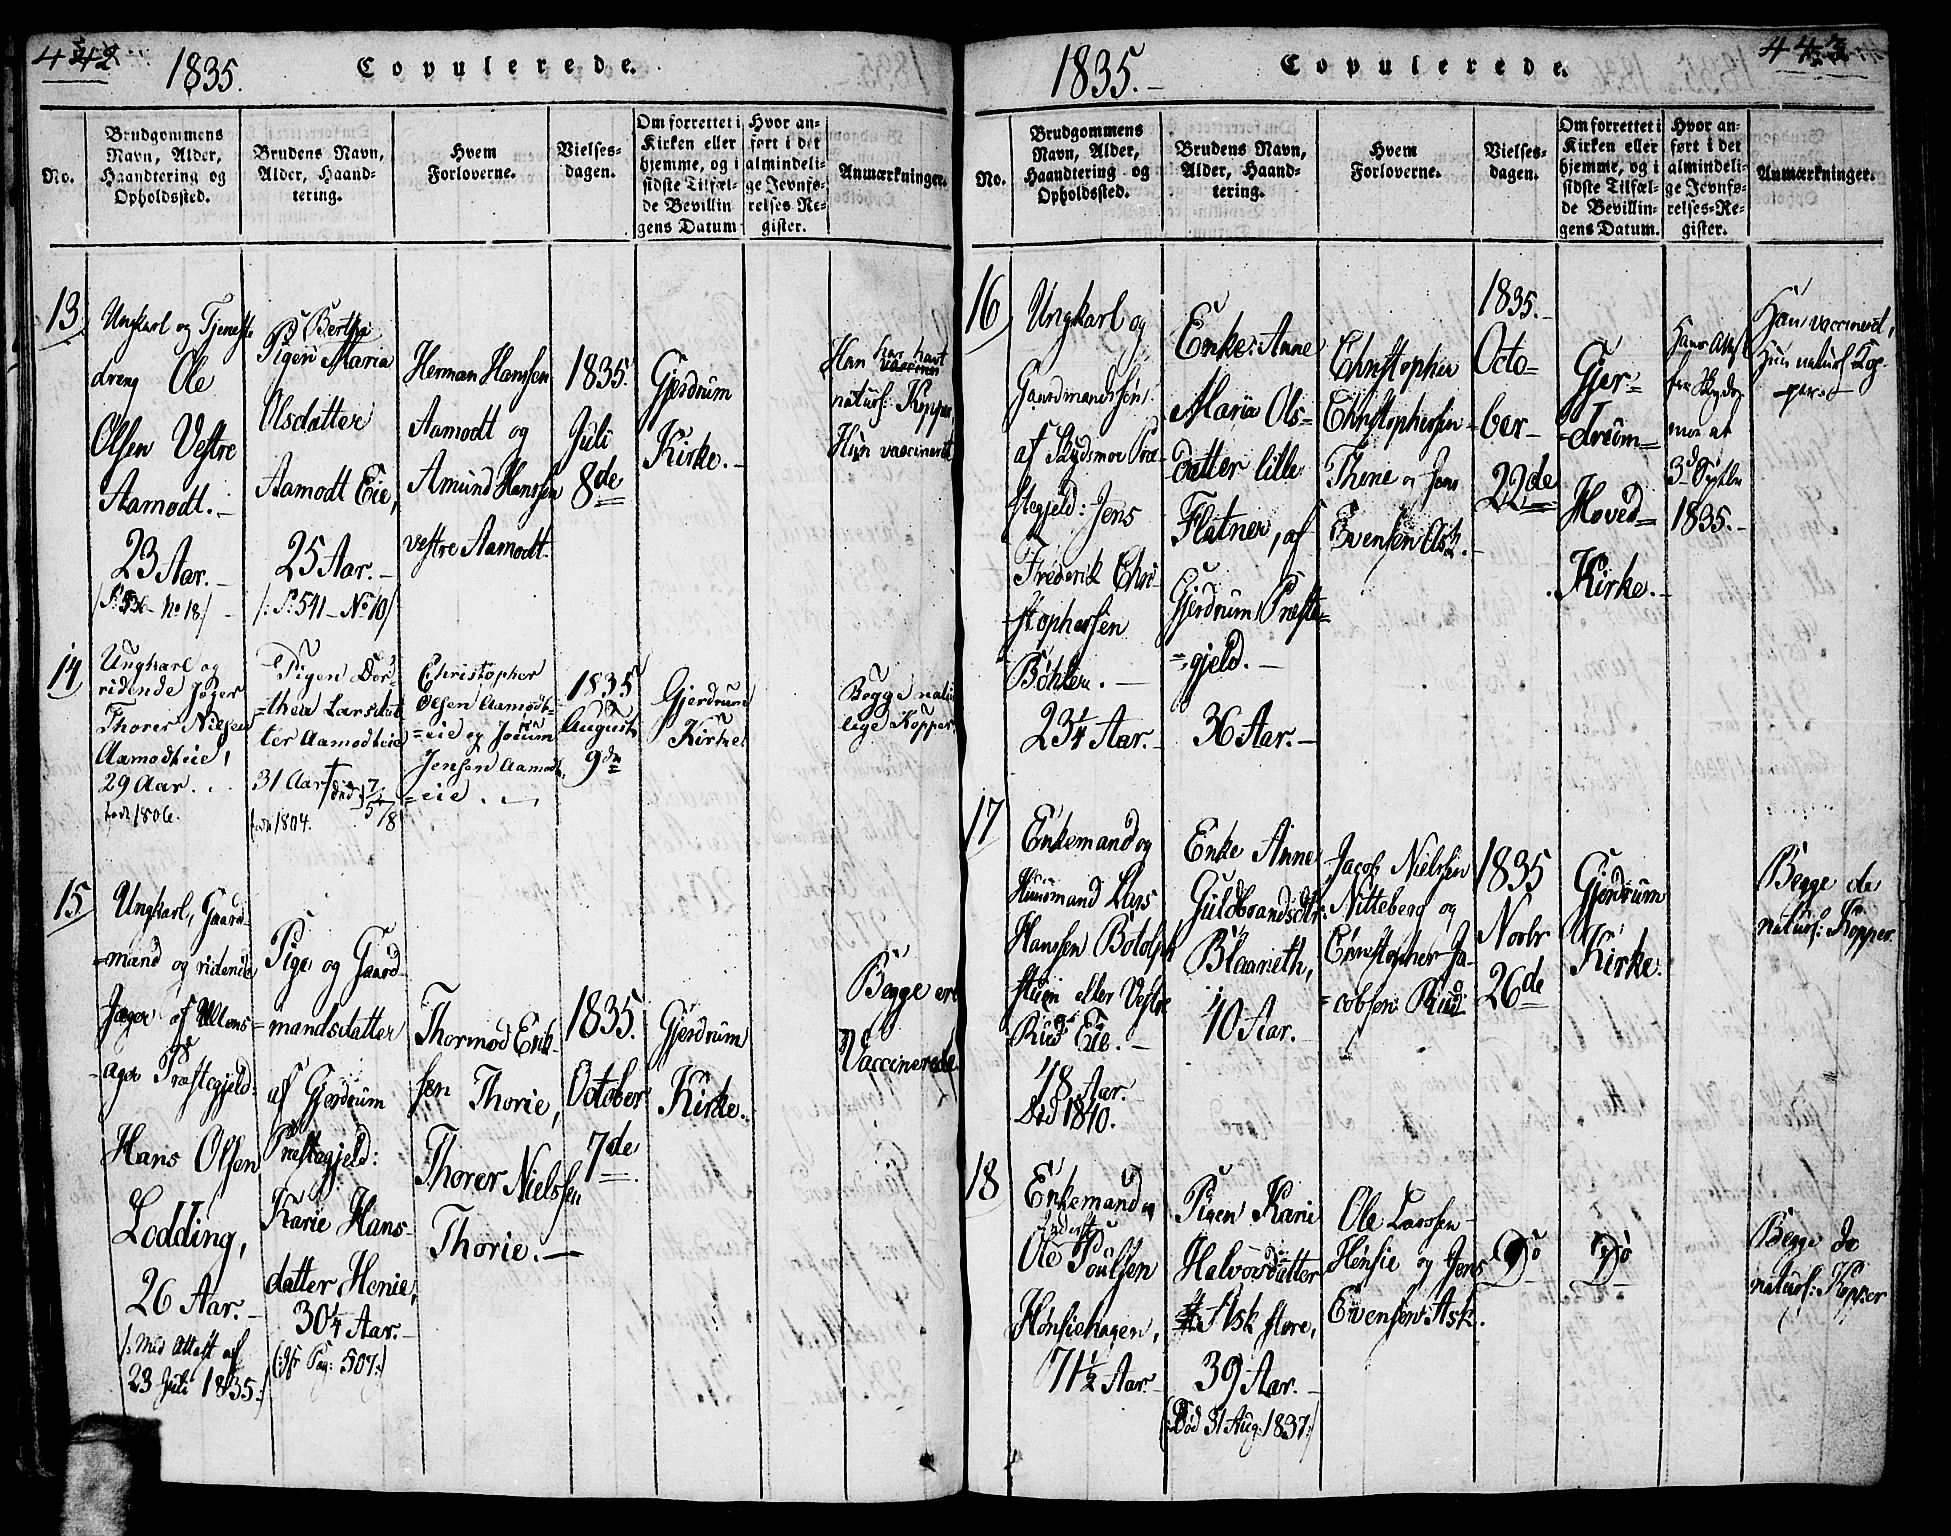 442
1835.
Copulerede.
No.
Brudgommens
Navn, Alder,
Haandtering og
Opholdssted.
Brudens Navn,
Alder, Haand-
tering.
Hvem
Forloverne.
Vielses-
dagen.
Om forrettet i
Kirken eller
hjemme, og i
sidste Tilfæl-
de Bevillin
gens Datum
Hvor an-
ført i det
almindeli-
ge Jevnfø-
relses-Re-
gister.
Anmærkninger.
13
Ungkarl og Tjeneste
dreng Ole
Olsen Vestre
Aamodt.
23 Aar.
No 18
Bertha
Pigen Maria
Olsdatter
Aamodt Eie,
25 Aar.
/: P: 541 - No 10/
Herman Hanssen
Aamodt og
Amund Hanssen
vestre Aamodt.
1835.
Juli
8de
Gjerdrum
Kirke.
Han har havt
naturl: Kopper,
Hun vaccineret
14
Ungkarl og
ridende Jæger
Thorer Nielsen
Aamodteie,
29 Aar.
født 1806.
Pigen Dor-
thea Larsdat
ter Aamodteie
31 Aar
født 1804.
Christopher
Olsen Aamodt-
eie og
Jensen Aamodt
eie.
1835
August
9de
Gjerdrum
Kirke
Begge natur
lige Kopper.
15
Ungkarl, Gaard
mand og ridende
Jæger af Ullens-
ager Præstegjeld:
Hans Olsen
Lodding,
26 Aar.
/: Med Attest af
23 Juli 1835:/
Pige og Gaard-
mandsdatter
af Gjerdrum
Præstegjeld:
Karie Hans-
datter Hønie,
30¼ Aar.
(: Pag: 507:)
Thormod Erik-
sen Thorie,
Thorer Nielssen
Thorie.
1835.
October
7de
Gjerdrum
Kirke.
Begge ere
Vaccinerede.
443
1835.
Copulerede.
No.
Brudgommens
Navn, Alder,
Haandtering og
Opholdssted.
Brudens Navn,
Alder, Haand-
tering.
Hvem
Forloverne.
Vielses-
dagen.
Om forrettet i
Kirken eller
hjemme, og i
sidste Tilfæl-
de Bevillin-
gens Datum.
Hvor an-
ført i det
almindeli-
ge Jevnfø-
relses-Re-
gister.
Anmærkninger.
16
Ungkarl og
Gaardmandssøn
af Skydsmoe Præ-
stegjeld: Jens
Frederik Chri-
stophersen
Bøhler.
23¼ Aar.
Enke: Anne
Maria Ols-
datter lille
Flatner, af
Gjerdrum Præste-
gjeld.
36 Aar.
Christopher
Christophersen
og Jens
Evensen
1835.
Octo-
ber
22de
Gjer-
drum
Hoved-
Kirke.
Hans Attest
fra
moe af
3d Septbr
1835.
Han vaccineret,
Hun naturl: Kop-
per.
17
Enkemand og
Huusmand Lars
Hanssen Botolph
stuen eller Vestre
Rud Eie.
48 Aar.
Død 1840.
Enke Anne
Guldbrandsdtr:
40 Aar.
Jacob Nielssen
Nitteberg og
Christopher Ja-
cobsen Rud
1835
Novbr
26de
Gjerdrum
Kirke.
Begge de
naturl: Kopper.
18
Enkemand og
Ole Poulsen
Hønsiehagen,
71½ Aar.
Pigen Karie
Halvorsdatter
Ask store,
39 Aar.
(Død 31 Aug: 1837:/
Ole Larssen
Hønsie og Jens
Evensen Ask.
Do
Do
Begge de
naturl: Kopper